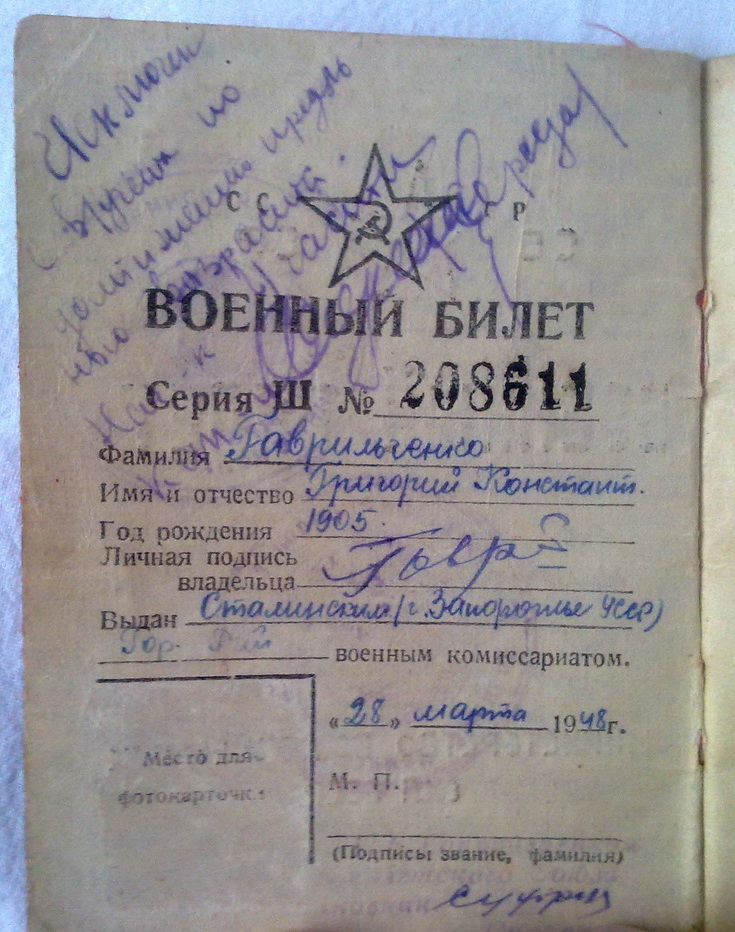 Исключен
с в/учета по
достижению предель
ного возраста.
Нач-к части
СС Р
ВОЕННЫЙ БИЛЕТ
Серия Ш № 208611
Фамилия Гаврильченко
Имя и отчество Григорий Констант.
Год рождения 1905.
Личная подпись
владельца Гавр
Выдан Сталинским (г. Запорожье УССР)
Гор. Рай военным комиссариатом.
«28» марта 1948г.
Место для
фотокарточки
М. П.
(Подписы звание, фамилия)